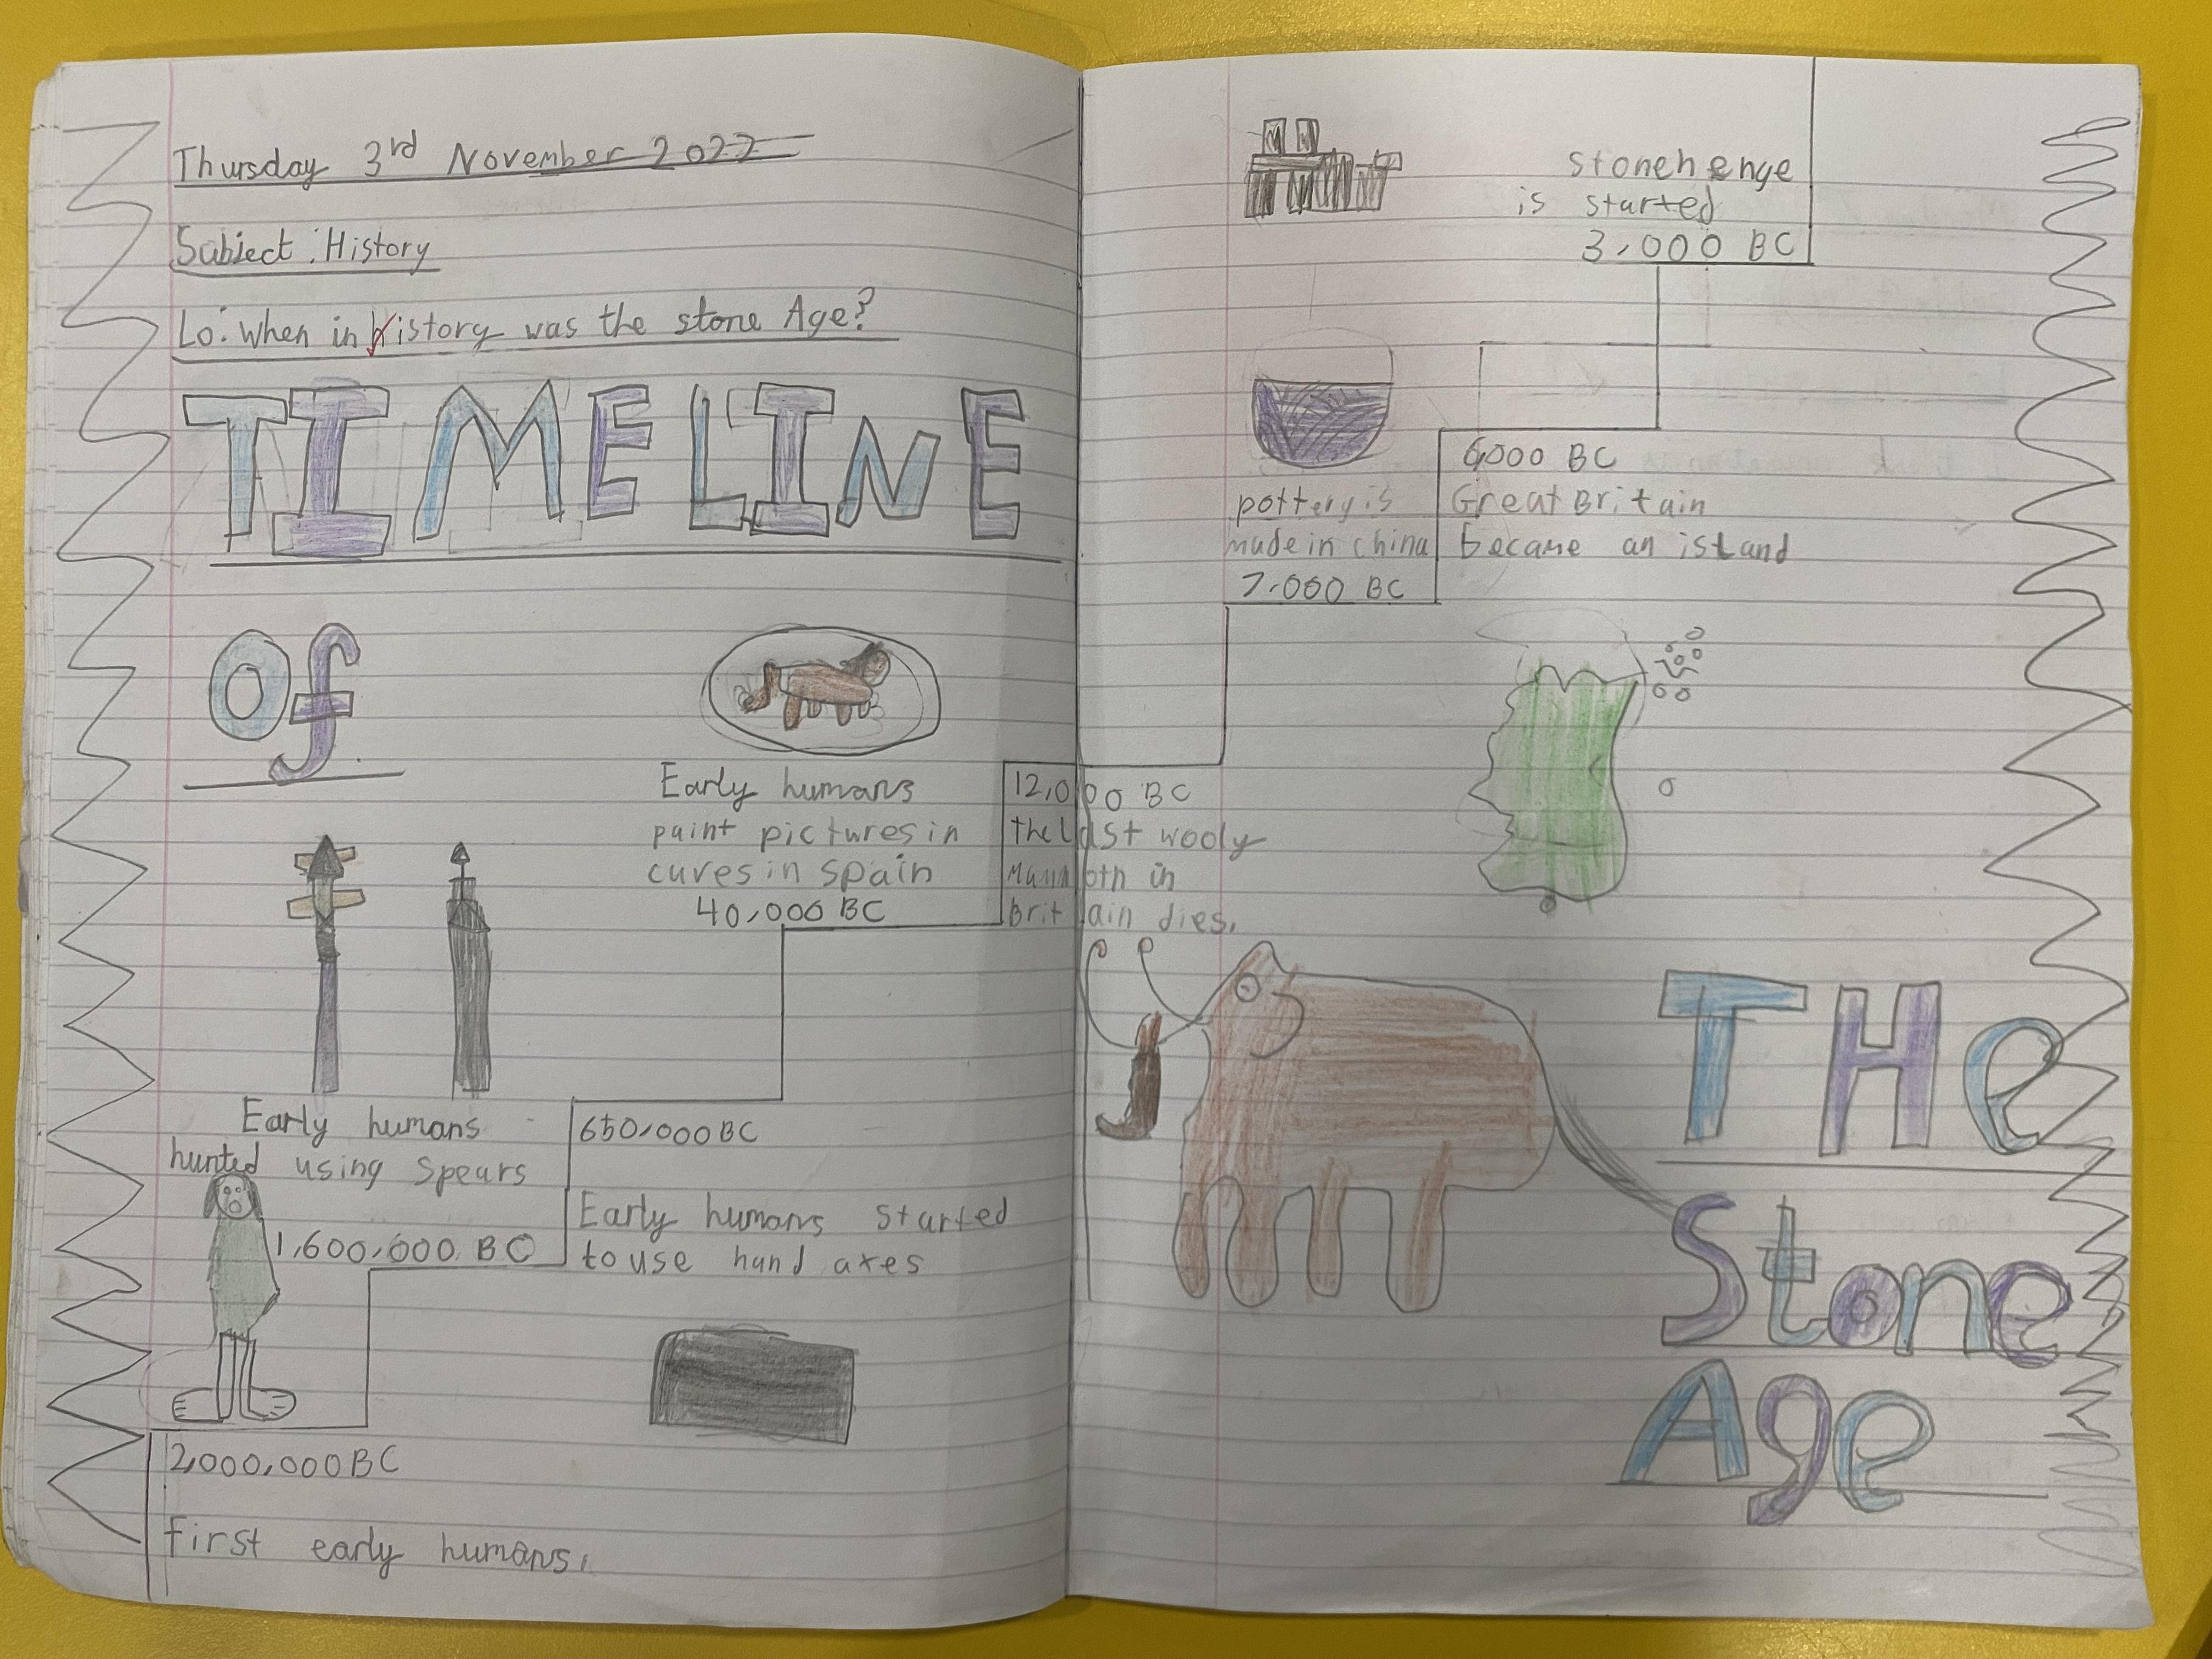 Thursday 3rd November 2022
Subject : History
Lo: When in history was the stone Age?
TIMELINE
Of
Early humans
paint pictures in
caves in spain
40,000 BC
Early humans
hunted using spears
1,600,000 BC
650,000 BC
Early humans started
to use hand axes
2,000,000 BC
first early humans.
12,000 BC
the last wooly
Mammoth in
Britain dies.
stonehenge
is started
3,000 BC
pottery is
made in china
7,000 BC
6,000 BC
Great Britain
became an island
THe
Stone
Age